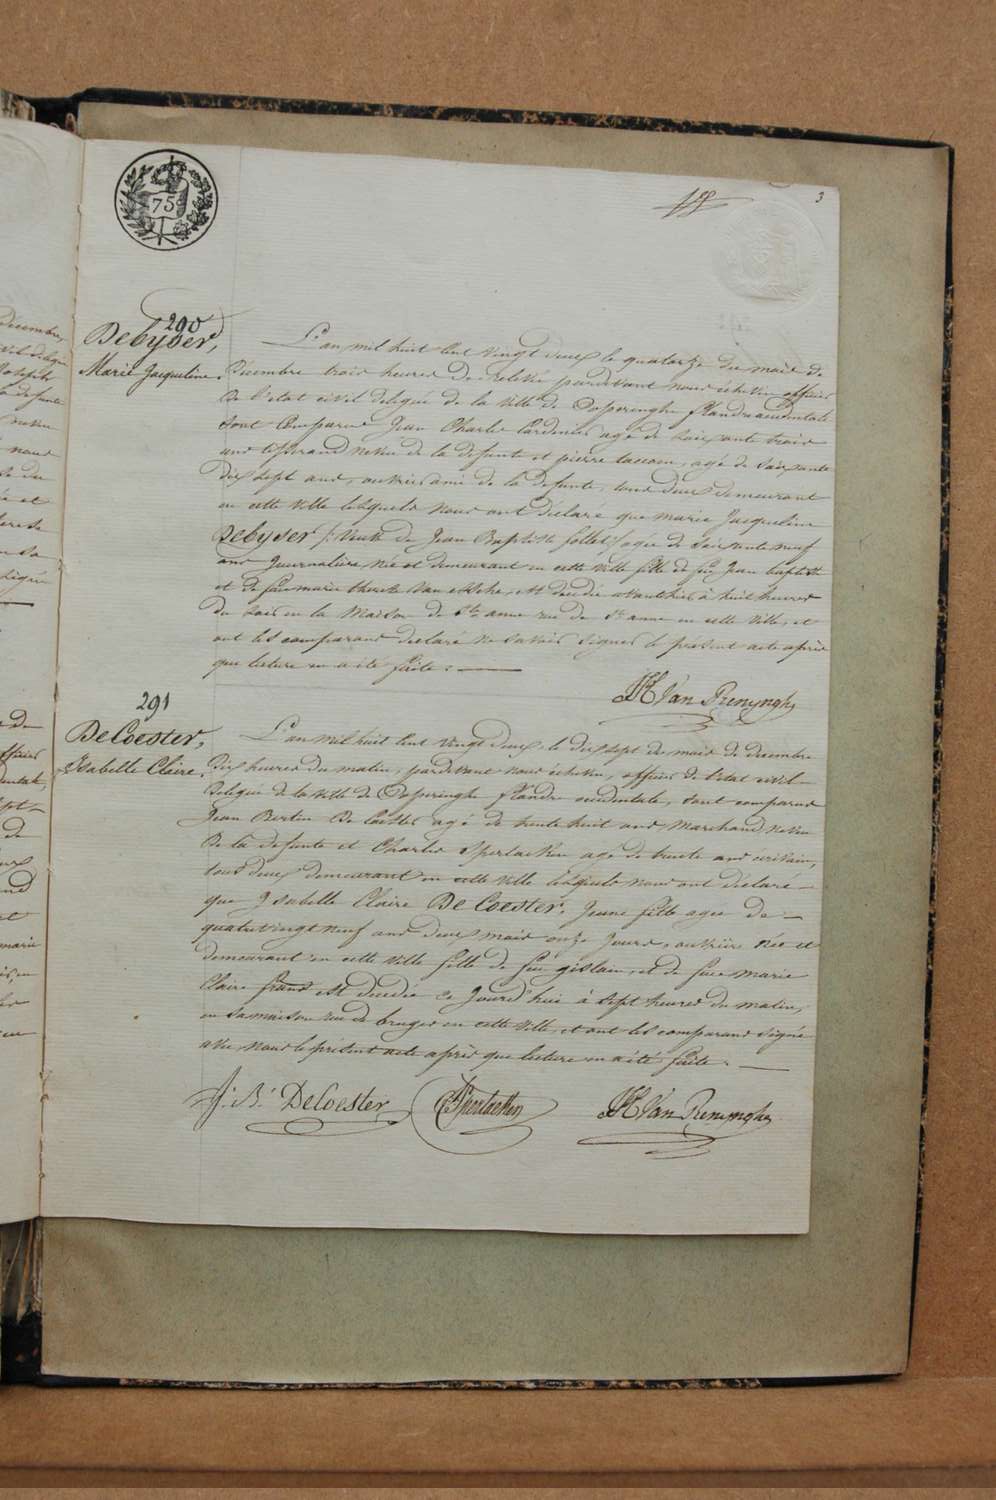 75
3
290
Debyser,
Marie Jacqueline.
L'an mil huit cent vingt deux le quatorze du mois de
Décembre trois heures de relevée pardevant nous échevin officier
de l'état civil délégué de la ville de Poperinghe flandre occidentale
sont comparus Jean Charles Cardinael agé de soixante trois
ans tisserand neveu de la defunte et pierre agé de soixante
dix sept ans, ouvrier ami de la defunte, tous deux demeurant
en cette ville lesquels nous ont déclaré que marie Jacqueline
Debyser /: veuve de Jean Baptiste follet :/ agée de soixante neuf
ans Journalière née et demeurant en cette ville fille de feu Jean baptiste
et de feue marie therese Van est decedée avant hier à huit heures
du soir en la Maison de Ste anne rue de Ste anne en cette ville, et
ont les comparans declaré ne savoir signer le présent acte après
que lecture en a été faite.
Van Renynghe
291
DeCoester,
Isabelle Claire.
L'an mil huit cent vingt deux, le dix sept de mois de decembre
Dix heures du matin, pardevant nous échevin, officier de l'état civil
Delégué de la ville de Poperinghe flandre occidentale, sont comparus
Jean Bertin De Coester agé de trente huit ans Marchand neveu
De la defunte et Charles Sperlaeken agé de trente ans écrivain,
tous deux demeurant en cette ville lesquels nous ont déclaré
que Ysabelle Claire DeCoester, Jeune fille agée de
quatrevingt neuf ans deux mois onze jours, ouvrière née et
demeurant en cette ville fille de feu gislain, et de feue marie
Claire frans est decedée ce Jourd'hui à sept heures du matin,
en sa maison rue de bruges en cette ville, et ont les comparans signé
avec nous le présent acte après que lecture en a été faite.
J: B: DeCoester
CSperlaeken
Van Renynghe